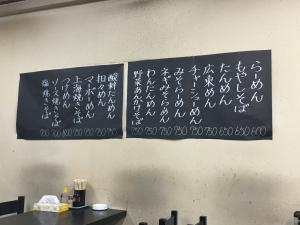 らーめん 600
もやしそば 650
たんめん 650
広東めん 750
チャーシューめん 750
みそらーめん 750
ネギみそらーめん
わんたんめん 750
野菜あんかけそば 750
酸辣たんめん 750
担々めん 750
マーボーめん 750
上海焼きそば 750
つけめん 800
ソース焼きそば 700
塩焼きそば 700